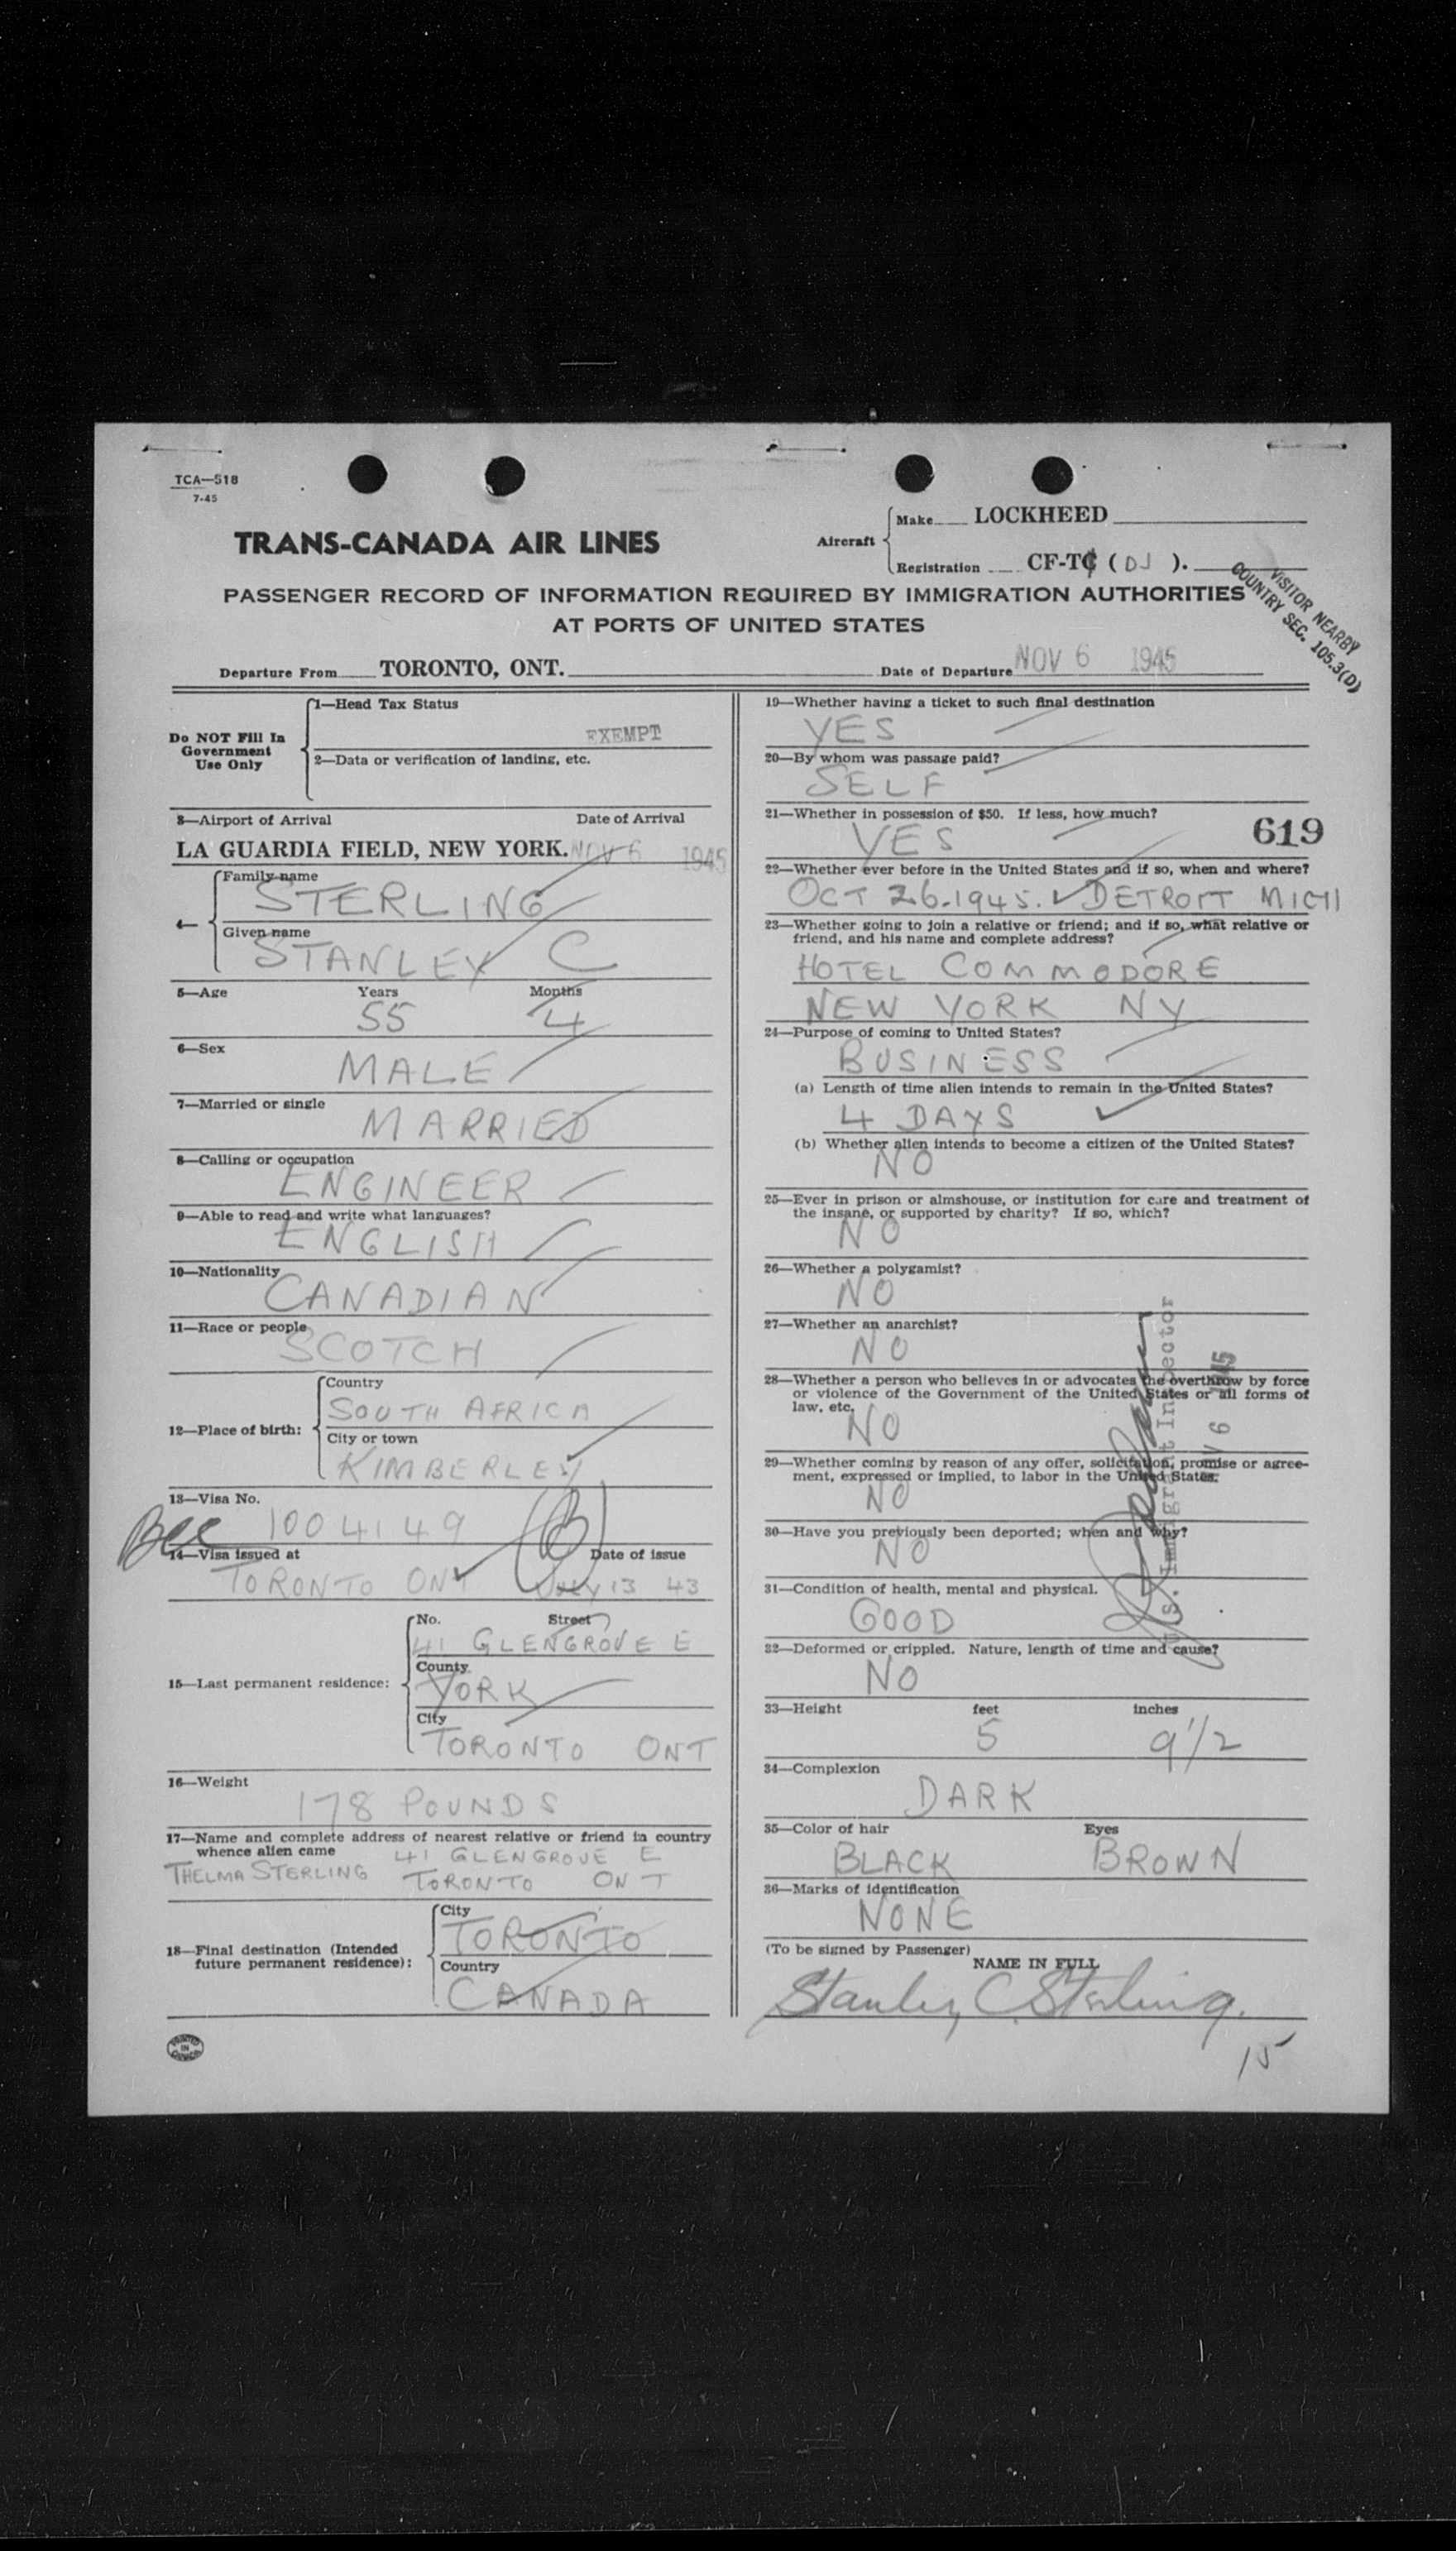 TCA—518
7-45
TRANS-CANADA AIR LINES
Aircraft
Make LOCKHEED
Registration CF-TC (DJ).
PASSENGER RECORD OF INFORMATION REQUIRED BY IMMIGRATION AUTHORITIES
AT PORTS OF UNITED STATES
VISITOR NEARBY
COUNTRY SEC. 105.3(D)
Departure From TORONTO, ONT. Date of Departure NOV 6 1945
Do NOT Fill In
Government
Use Only
1—Head Tax Status
EXEMPT
2—Data or verification of landing, etc.
3—Airport of Arrival Date of Arrival
LA GUARDIA FIELD, NEW YORK. NOV 6 1945
4—
Family name
STERLING
Given name
STANLEY C
5—Age Years Months
55 4
6—Sex
MALE
7—Married or single
MARRIED
8—Calling or occupation
ENGINEER
9—Able to read and write what languages?
ENGLISH
10—Nationality
CANADIAN
11—Race or people
SCOTCH
12—Place of birth:
Country
SOUTH AFRICA
City or town
KIMBERLEY
13—Visa No.
BCC 1004149
14—Visa issued at Date of issue
TORONTO ONT JULY 13 43
15—Last permanent residence:
No. Street
41 GLENGROVE E
County
YORK
City
TORONTO ONT
16—Weight
178 POUNDS
17—Name and complete address of nearest relative or friend in country
whence alien came 41 GLENGROVE E
THELMA STERLING TORONTO ONT
18—Final destination (Intended
future permanent residence):
City
TORONTO
Country
CANADA
PRINTED
IN
CANADA
19—Whether having a ticket to such final destination
YES
20—By whom was passage paid?
SELF
21—Whether in possession of $50. If less, how much?
YES
619
22—Whether ever before in the United States and if so, when and where?
OCT 26.1945. DETROIT MICH
23—Whether going to join a relative or friend; and if so, what relative or
friend, and his name and complete address?
HOTEL COMMODORE
NEW YORK NY
24—Purpose of coming to United States?
BUSINESS
(a) Length of time alien intends to remain in the United States?
4 DAYS
(b) Whether alien intends to become a citizen of the United States?
NO
25—Ever in prison or almshouse, or institution for care and treatment of
the insane, or supported by charity? If so, which?
NO
26—Whether a polygamist?
NO
27—Whether an anarchist?
NO
28—Whether a person who believes in or advocates the overthrow by force
or violence of the Government of the United States or all forms of
law. etc.
NO
29—Whether coming by reason of any offer, solicitation, promise or agree-
ment, expressed or implied, to labor in the United States.
NO
30—Have you previously been deported; when and why?
NO
U.S. Immigrant Inspector
NOV 6 1945
31—Condition of health, mental and physical.
GOOD
32—Deformed or crippled. Nature, length of time and cause?
NO
33—Height feet inches
5 9 1/2
34—Complexion
DARK
35—Color of hair Eyes
BLACK BROWN
36—Marks of identification
NONE
(To be signed by Passenger)
NAME IN FULL
Stanley C. Sterling.
15